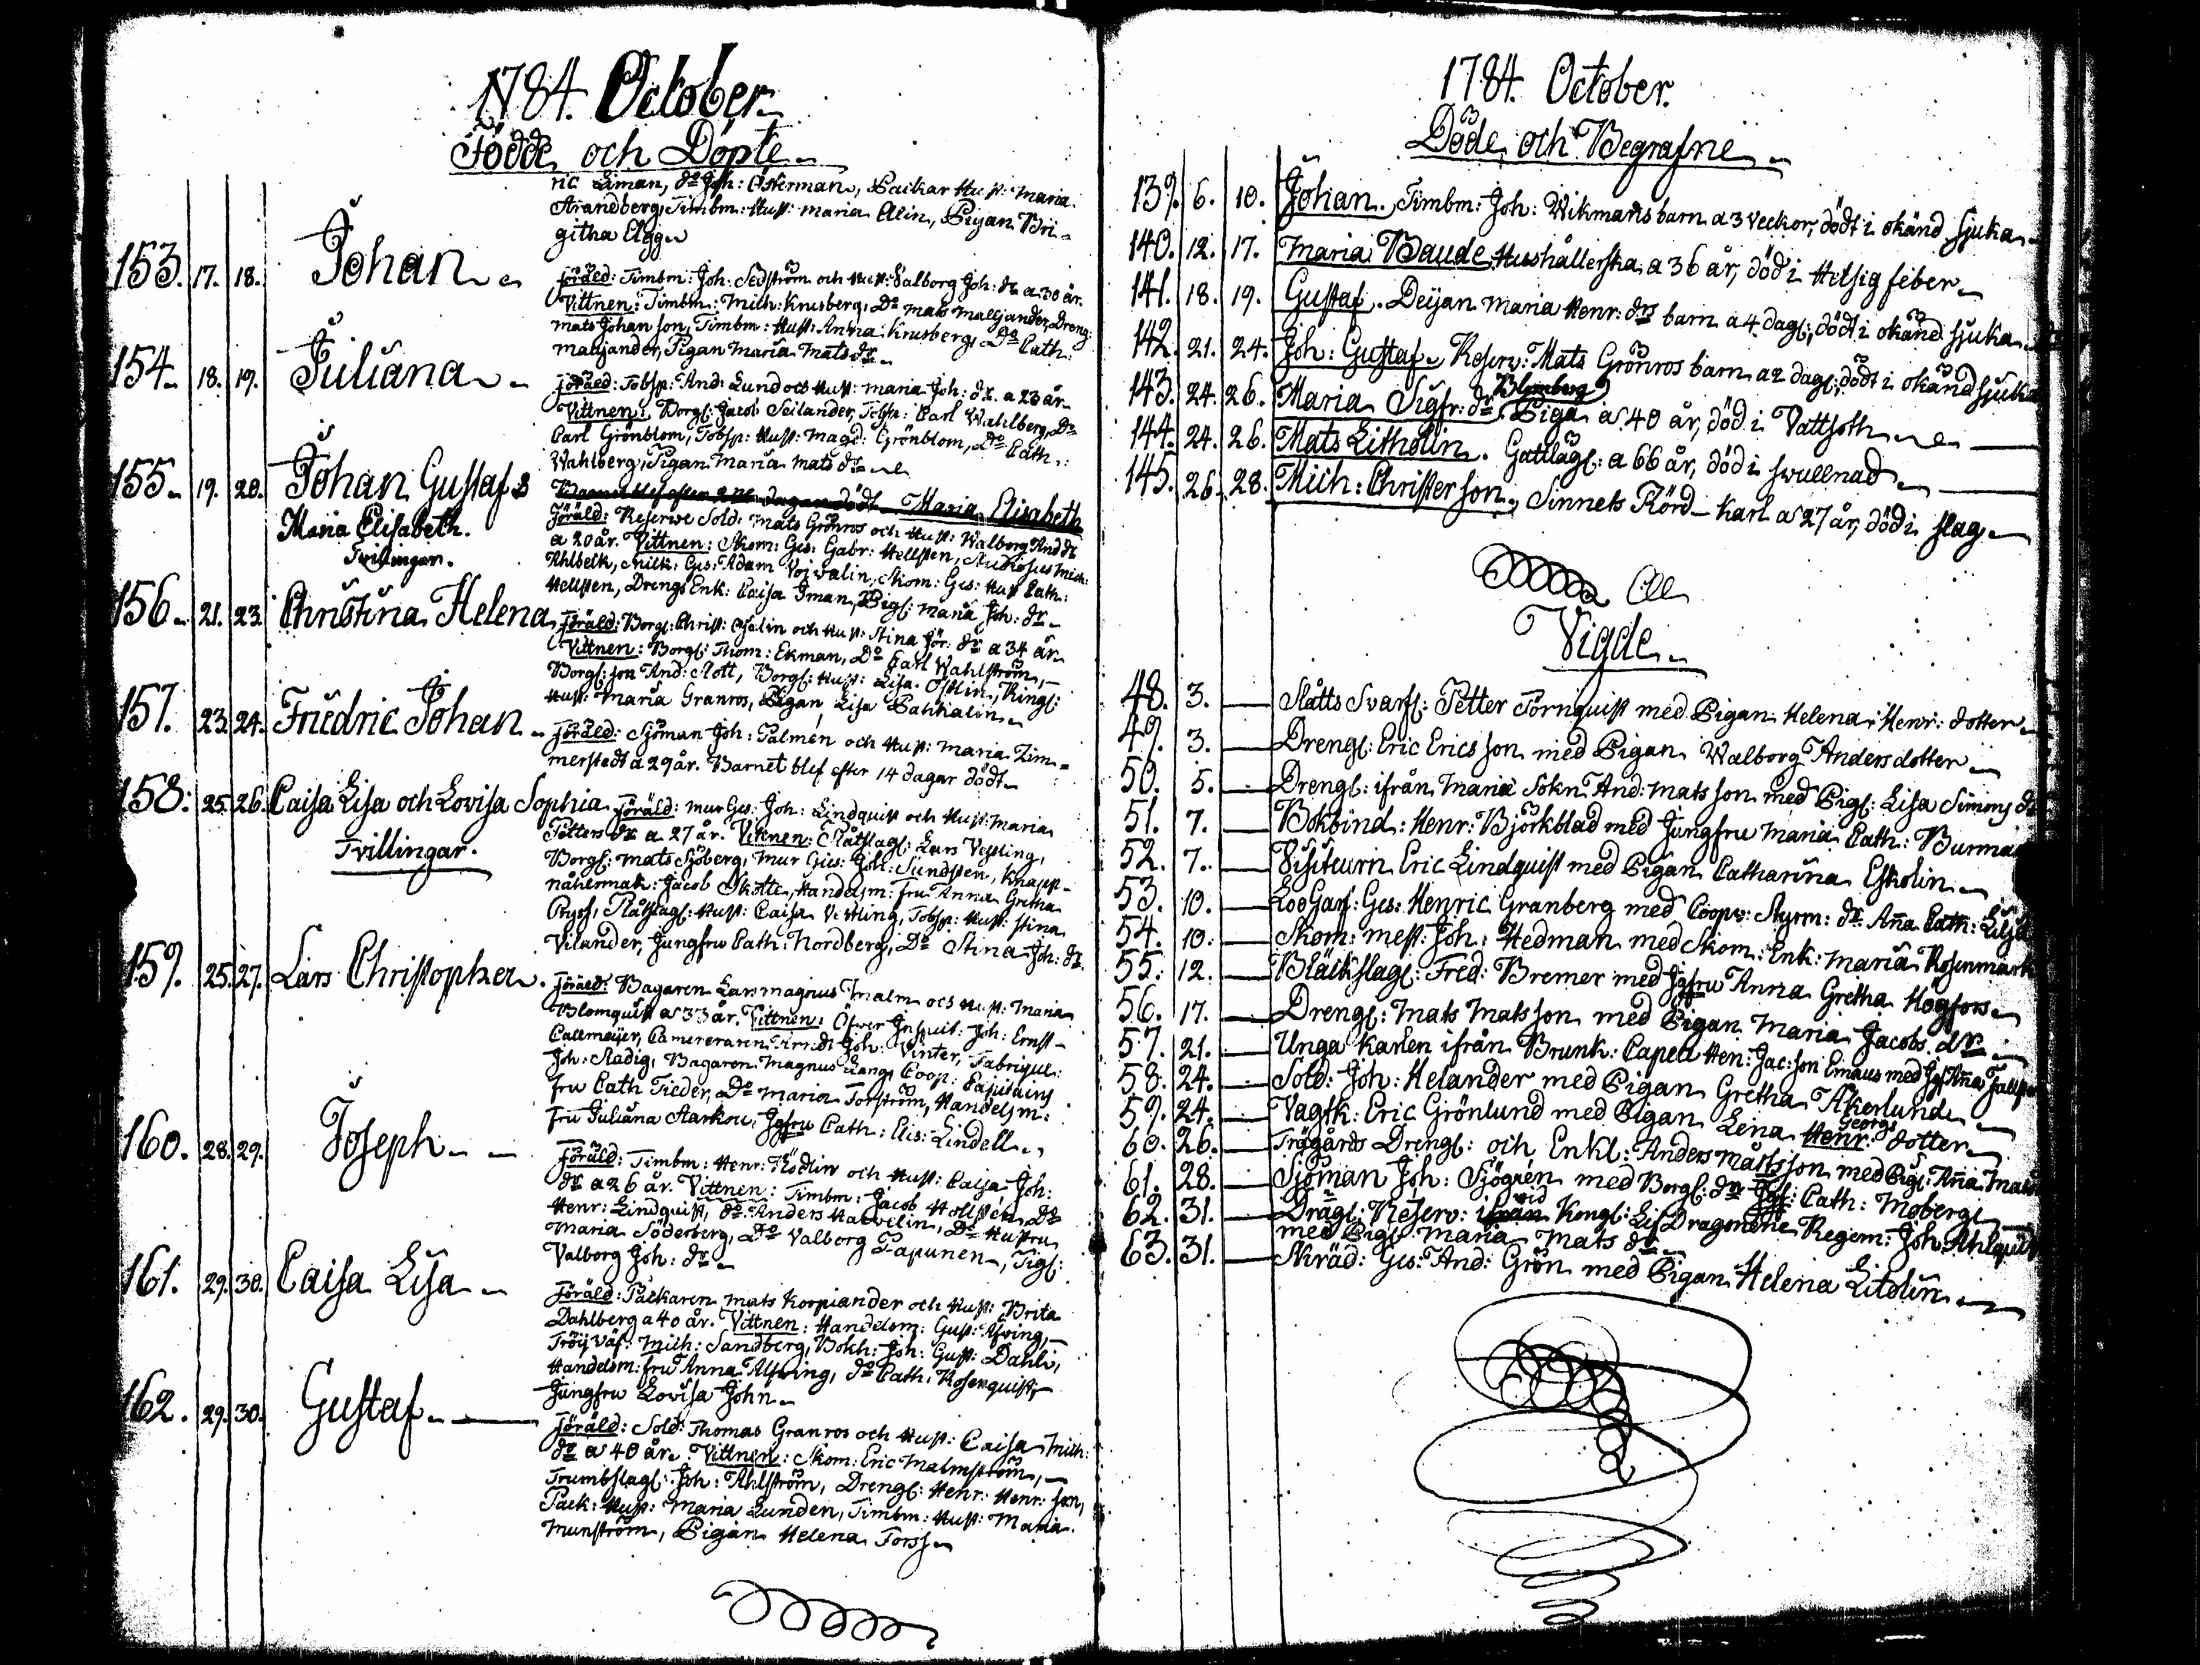 1784. October.
Födde och Döpte
ric Liman, do Joh: Österman, Packar Hust: Maria
Strandberg, Timbm: Hust: Maria Alin, Pigan Bri-
githa Elgg
153. 17. 18. Johan
Föräld: Timbm: Joh: Sedström och Hust: Valborg Joh: dr a 30 år.
Vittnen: Timbm: Mich: Krusberg, Do Mats Malljander, Dreng:
Mats Johansson, Timbm: Hust: Anna Krusberg, Do Cath:
Malljander, Pigan Maria Mats dr
154. 18. 19. Juliana
Föräld: Tobsp: And: Lund och Hust: Maria Joh: dr. a 23 år
Vittnen: Borgl: Jacob Seilander, Tobsp: Carl Wahlberg, Do
Carl Grönblom, Tobsp: Hust: Magd: Grönblom, Do Cath:
Wahlberg, Pigan Maria Mats dr
155. 19. 20. Johan Gustaf &
Maria Elisabeth.
Tvillingar.
Maria Elisabeth
Föräld: Reserve Sold: Mats Grönros och Hust: Walborg And dr
a 20 år. Vittnen: Skom: Ges: Gabr: Hellsten, Studiosus Mich:
Ahlbeck, Ges: Adam Voivalin, Skom: Ges: Hust Cath:
Hellsten, Drengs Enk: Caisa Iman, Pigl: Maria Joh: dr
156. 21. 23. Christina Helena
Föräld: Borgl: Christ: och Hust: Stina dr a 34 år
Vittnen: Borgl: Thom: Ekman, Do Carl Wahlström,
Borgl: son And: Slott, Borgl: Hust: Lisa Östlin, Ringl:
Hust: Maria Granros, Pigan Lisa Pahkalin
157. 23. 24. Friedric Johan
Föräld: Sjöman Joh: Palmén och Hust: Maria Zim-
merstedt a 29 år. Barnet blef efter 14 dagar dödt
158. 25. 26. Caisa Lisa och Lovisa Sophia
Tvillingar.
Föräld: Mur Ges: Joh: Lindquist och Hust: Maria
Petters dr a 27 år. Vittnen: Slåtslagl: Lars Vestling,
Borgl: Mats Sjöberg, Mur Ges: Joh: Sundsten, Knapp-
nålsmak: Jacob Skotte, Handelsm: fru Anna Gretha
Pryss, Slåtslagl: Hust: Caisa Vestling, Tobsp: Hust: Stina
Vilander, Jungfru Cath: Nordberg, Do Stina Joh: dr.
159. 25. 27. Lars Christopher.
Föräld: Bagaren Lars Magnus Malm och Hust: Maria
Blomquist a 33 år. Vittnen: Joh: Ernst
Callmeijer, Camereraren Joh: Vinter, Fabriqur:
Joh: Stadig, Bagaren Magnus Lang, Coop:
fru Cath Tieder, Do Maria Forström, Handelsm:
fru Juliana Starkou, Jgfru Cath: Elis: Lindell
160. 28. 29. Joseph
Föräld: Timbm: Henr: Rödlin och Hust: Caisa Joh:
dr a 26 år. Vittnen: Timbm: Jacob Hollsten, Do
Henr: Lindquist, do: Anders Harvelin, Do Hustru
Maria Söderberg, Do Valborg Papunen, Pigl:
Valborg Joh: dr
161. 29. 30. Caisa Lisa
Föräld: Packaren Mats Koopiander och Hust: Brita
Dahlberg a 40 år. Vittnen: Handelsm: Gust: Alfving,
Tröij Väf: Mich: Sandberg, Bokh: Joh: Gust: Dahli,
Handelsm: fru Anna Alfving, do Cath: Rosenquist,
Jungfru Lovisa John
162. 29. 30. Gustaf
Föräld: Sold: Thomas Granros och Hust: Caisa Mich:
dr a 40 år. Vittnen: Skom: Eric Malmström,
Trumbslagl: Joh: Ahlström, Drengl: Henr: Henr: son,
Pack: Hust: Maria Lunden, Timbm: Hust: Maria
Munström, Pigan Helena Forss
1784. October.
Döde och Begrafne
139. 6. 10. Johan. Timbm: Joh: Wikmans barn a 3 veckor, dödt i okänd sjuka
140. 12. 17. Maria Baude Hushållerska a 36 år, död i Hetsig feber
141. 18. 19. Gustaf. Deijan Maria Henr: drs barn a 4 dagl; dödt i okänd sjuka
142. 21. 24. Joh: Gustaf Reserv: Mats Grönros barn a 2 dagl; dödt i okänd sjuka
143. 24. 26. Maria Sigfr: dr Blomberg Piga a 40 år, död i Vattsoth
144. 24. 26. Mats Litholin. Gattlägl: a 66 år, död i swullnad
145. 26. 28. Mich: Christerson, Sinnets Rörd Karl a 27 år, död i slag
Vigde
48. 3. Slåtts Svarfl: Petter Törnquist med Pigan Helena Henr: dotter
49. 3. Drengl: Eric Ericsson med Pigan Walborg Anders dotter
50. 5. Drengl: ifrån Maria Sokn And: Matsson med Pigl: Lisa Simons dr
51. 7. Bokbind: Henr: Björkblad med Jungfru Maria Cath: Burma
52. 7. Visiteurn Eric Lindquist med Pigan Catharina Eskolin
53. 10. Loo Garf: Ges: Henric Granberg med Coopv: Styrm: dr Aña Cath: Lilje
54. 10. Skom: mest: Joh: Hedman med Skom: Enk: Maria Rosenmark
55. 12. Bläckslagl: Fred: Bremer med Jgfru Anna Gretha Högfors
56. 17. Drengl: Mats Matsson med Pigan Maria Jacobs dr
57. 21. Unga Karlen ifrån Brunk: Capell Hen: Jac: son Emaus med Jgf Aña
58. 24. Sold: Joh: Helander med Pigan Gretha Åkerlund
59. 24. Vagtk: Eric Grönlund med Pigan Lena Henr: Georgs dotter
60. 26. Trägårds Drengl: och Enkl: Anders Mårtsson med Pigl: Aña Mats
61. 28. Sjöman Joh: Sjögrén med Borgl: dr Jgf: Cath: Moberg
62. 31. Drägl: Reserv: ifrån vid Kongl: Lif Dragoune Regem: Joh: Ahlquist
med Pigl: Maria Mats dr
63. 31. Skräd: Ges: And: Grön med Pigan Helena Litolin